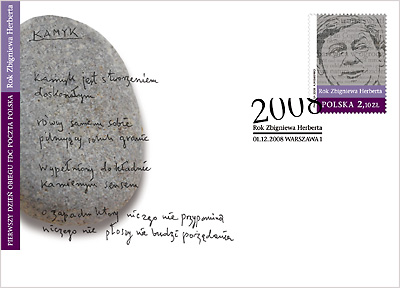 KAMYK
kamyk jest stworzeniem
doskonałym
równy samemu sobie
pilnujący swych granic
wypełniony dokładnie
kamiennym sensem
o zapachu który niczego nie przypomina
niczego nie płoszy nie budzi pożądania
PIERWSZY DZIEŃ OBIEGU FDC POCZTA POLSKA
Rok Zbigniewa Herberta
Rok Zbigniewa Herberta
POLSKA 2,10 ZŁ
2008
Rok Zbigniewa Herberta
01.12.2008 WARSZAWA 1